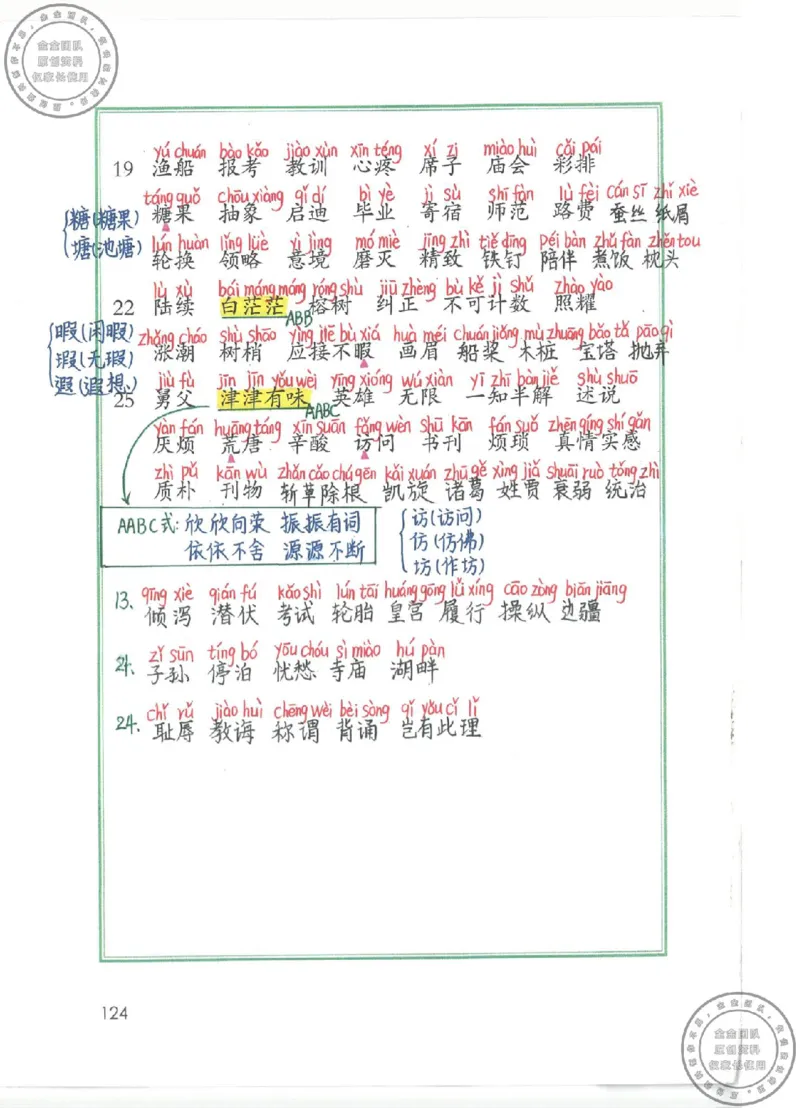 金金团队
原创资料
仅家长使用
yú chuán bào kǎo jiào xùn xīn téng xí zi miào huì cǎi pái
19 渔船 报考 教训 心疼 席子 庙会 彩排
táng guǒ chōu xiàng qǐ dí bì yè jì sù shī fàn lù fèi cán sī zhǐ xiè
糖(糖果) 糖果 抽象 启迪 毕业 寄宿 师范 路费 蚕丝 纸屑
塘(池塘) lún huàn lǐng lüè yì jìng mó miè jīng zhì tiě dīng péi bàn zhǔ fàn zhěn tou
轮换 领略 意境 磨灭 精致 铁钉 陪伴 煮饭 枕头
lù xù bái máng máng róng shù jiū zhèng bù kě jì shǔ zhào yào
22 陆续 白茫茫 ABB 榕树 纠正 不可计数 照耀
暇(闲暇) zhǎng cháo shù shāo yìng jiē bù xiá huà méi chuán jiǎng mù zhuāng bǎo tǎ pāo qì
瑕(无瑕) 涨潮 树梢 应接不暇 画眉 船桨 木桩 宝塔 抛弃
遐(遐想) jiù fù jīn jīn yǒu wèi yīng xióng wú xiàn yī zhī bàn jiě shù shuō
25 舅父 津津有味 AABC 英雄 无限 一知半解 述说
yàn fán huāng táng xīn suān fǎng wèn shū kān fán suǒ zhēn qíng shí gǎn
厌烦 荒唐 辛酸 访问 书刊 烦琐 真情实感
zhì pǔ kān wù zhǎn cǎo chú gēn kǎi xuán zhū gě xìng jiǎ shuāi ruò tǒng zhì
质朴 刊物 斩草除根 凯旋 诸葛 姓贾 衰弱 统治
AABC式: 欣欣向荣 振振有词
依依不舍 源源不断
访(访问)
仿(仿佛)
坊(作坊)
qīng xiè qián fú kǎo shì lún tāi huáng gōng lǚ xíng cāo zòng biān jiāng
13. 倾泻 潜伏 考试 轮胎 皇宫 履行 操纵 边疆
zǐ sūn tíng bó yōu chóu sì miào hú pàn
21. 子孙 停泊 忧愁 寺庙 湖畔
chǐ rǔ jiào huì chēng wèi bèi sòng qǐ yǒu cǐ lǐ
24. 耻辱 教诲 称谓 背诵 岂有此理
124
金金团队
原创资料
仅家长使用